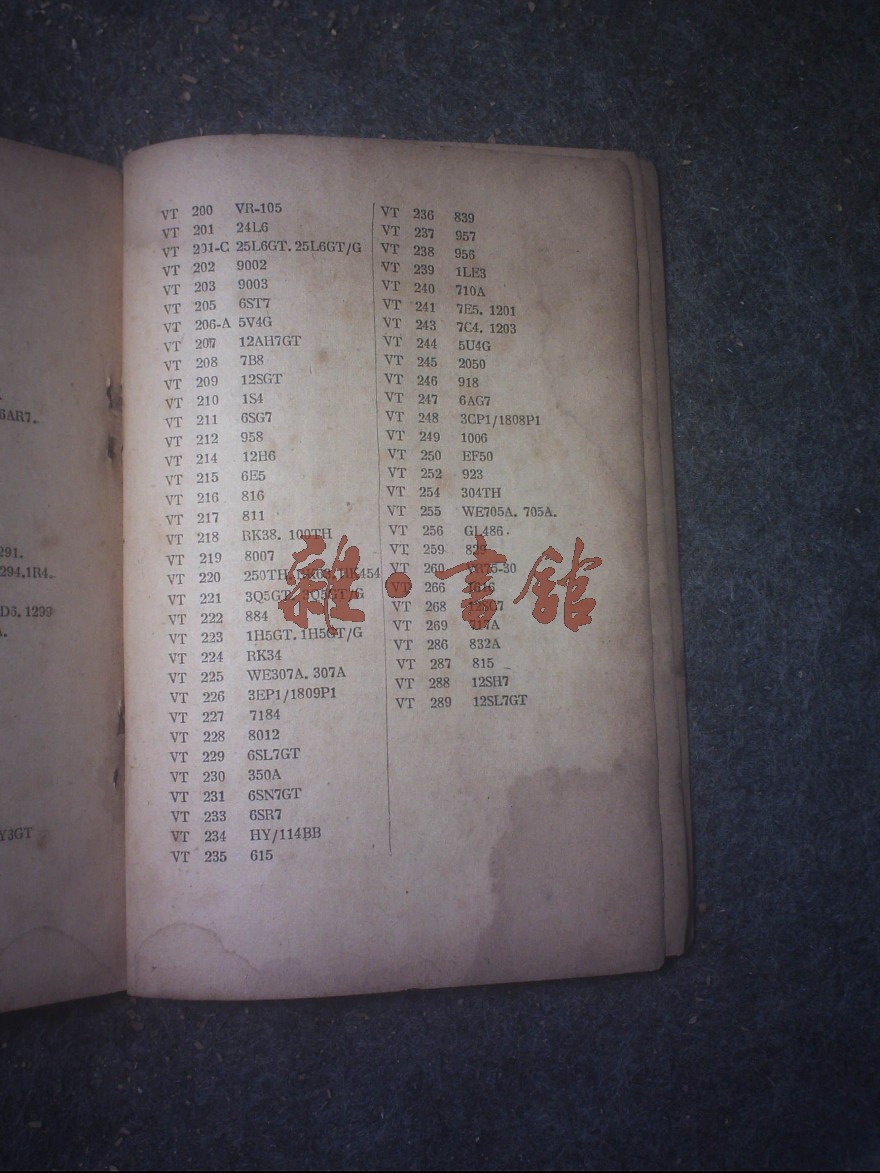 6AR7.
291.
294.1R4.
D6. 1299
Y3GT
VT 200 VR-105
VT 201 24L6
VT 201-C 25L6GT. 25L6GT/G
VT 202 9002
VT 203 9003
VT 205 6ST7
VT 206-A 5V4G
VT 207 12AH7GT
VT 208 7B8
VT 209 12SGT
VT 210 1S4
VT 211 6SG7
VT 212 958
VT 214 12H6
VT 215 6E5
VT 216 816
VT 217 811
VT 218 RK38. 100TH
VT 219 8007
VT 220 250TH. HK454
VT 221 3Q5GT. 3Q5GT/G
VT 222 884
VT 223 1H5GT. 1H5GT/G
VT 224 RK34
VT 225 WE307A. 307A
VT 226 3EP1/1809P1
VT 227 7184
VT 228 8012
VT 229 6SL7GT
VT 230 350A
VT 231 6SN7GT
VT 233 6SR7
VT 234 HY/114BB
VT 235 615
VT 236 839
VT 237 957
VT 238 956
VT 239 1LE3
VT 240 710A
VT 241 7E5. 1201
VT 243 7C4. 1203
VT 244 5U4G
VT 245 2050
VT 246 918
VT 247 6AG7
VT 248 3CP1/1808P1
VT 249 1006
VT 250 EF50
VT 252 923
VT 254 304TH
VT 255 WE705A. 705A.
VT 256 GL486.
VT 259 829
VT 260 VR75-30
VT 266 1616
VT 268 12SC7
VT 269 717A
VT 286 832A
VT 287 815
VT 288 12SH7
VT 289 12SL7GT
雜·書館